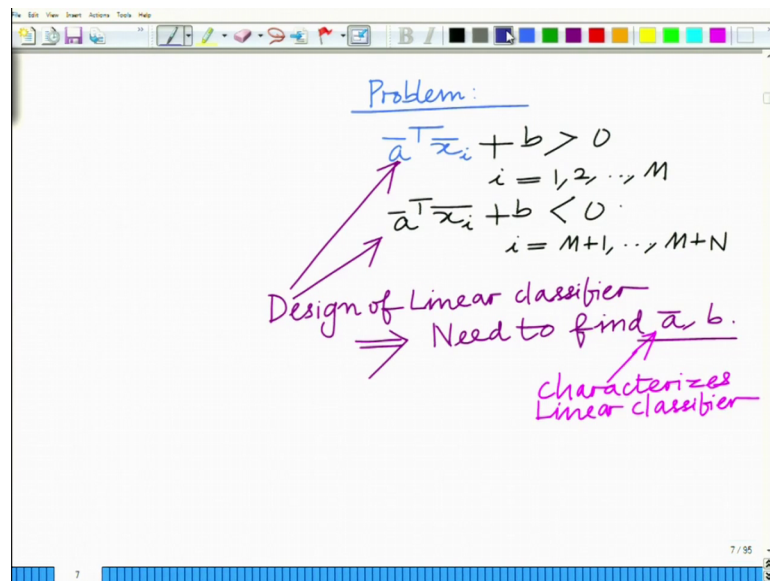 File Edit View Insert Actions Tools Help
B I
Problem:
a̅ᵀx̅ᵢ + b > 0
i = 1, 2, .., M
a̅ᵀx̅ᵢ + b < 0
i = M+1, .., M+N
Design of Linear classifier
⇒ Need to find a̅, b.
characterizes
Linear classifier
7 / 95
7